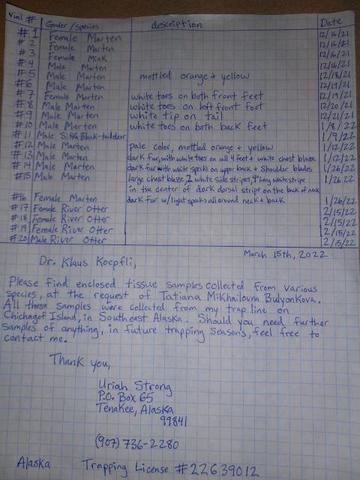 Vial # Gender/species description Date
#1 Female Marten 12/16/21
#2 Female Marten 12/16/21
#3 Female Mink 12/16/21
#4 Male Marten 12/16/21
#5 Male Marten mottled orange + yellow 12/18/21
#6 Male Marten 12/19/21
#7 Female Marten white toes on both front feet 12/19/21
#8 Male Marten white toes on left front foot 12/20/21
#9 Male Marten white tip on tail 12/21/21
#10 Male Marten white toes on both back feet 1/8/22
#11 Male Sitka Black-tailed 1/9/22
#12 Male Marten pale color, mottled orange + yellow 1/12/22
#13 Male Marten dark fur, with white toes on all 4 feet + white chest blaze 1/22/22
#14 Male Marten dark fur with white spots on upper back + shoulder blades 1/26/22
#15 Male Marten large chest blaze, 2 white side stripes, long white stripe 1/26/22
in the center of dark dorsal stripe on the back of neck
#16 Female Marten dark fur w/ light spots all around neck + back 1/26/22
#17 Female River Otter 2/15/22
#18 Female River Otter 2/15/22
#19 Female River Otter 2/15/22
#20 Male River Otter 2/15/22
March 15th, 2022
Dr. Klaus Koepfli,
Please find enclosed tissue samples collected from various
species, at the request of Tatiana Mikhailovna Bulyonkova.
All these samples were collected from my trap line on
Chichagof Island, in Southeast Alaska. Should you need further
samples of anything, in future trapping seasons, feel free to
contact me.
Thank you,
Uriah Strong
P.O. Box 65
Tenakee, Alaska
99841
(907) 736-2280
Alaska Trapping License #22639012